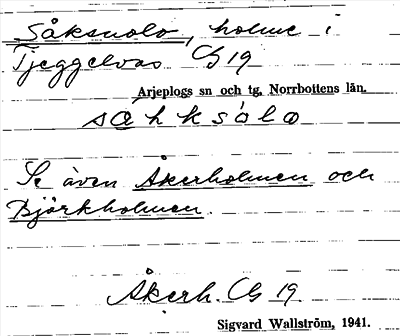 Såksuolo, holme i
Tjeggelvas Cg 19
Arjeplogs sn och tg, Norrbottens län.
sāhksúlo
Se även Åkerholmen och
Björkholmen.
Åkerh. Cg 19.
Sigvard Wallström, 1941.